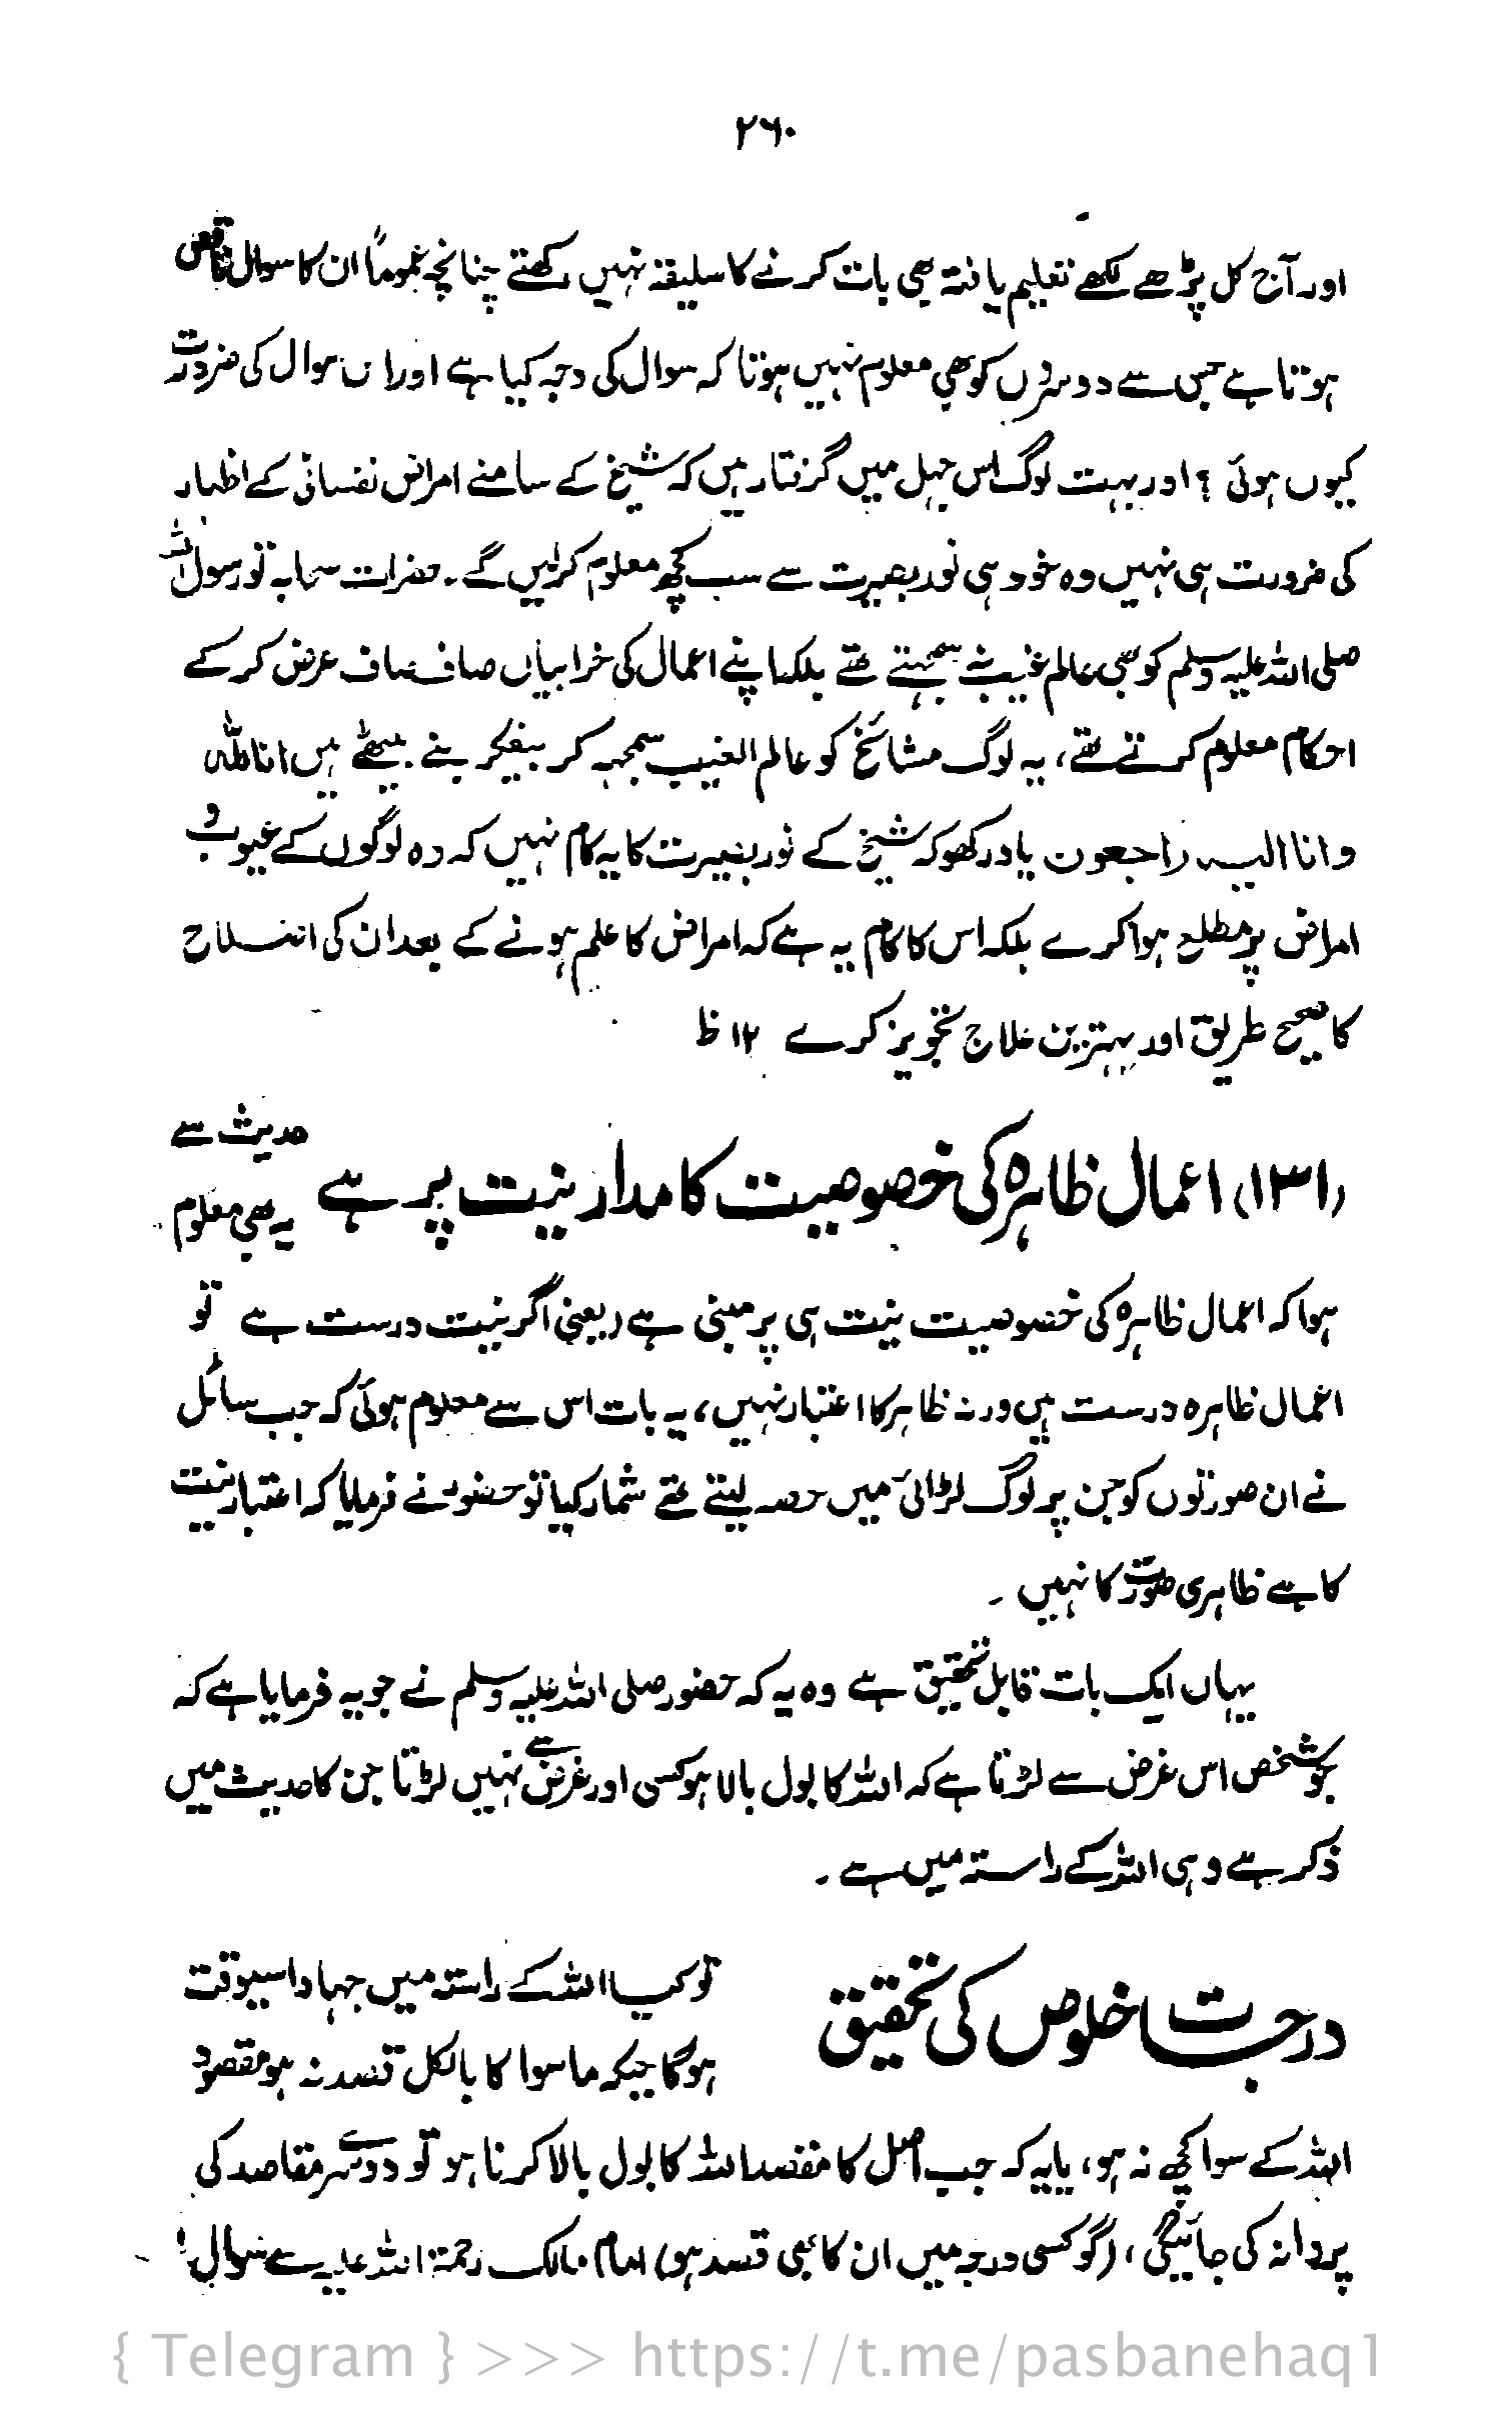 ۲۶۰
اور آج کل پڑھے لکھے تعلیم یافتہ بھی بات کرنے کا سلیقہ نہیں رکھتے چنانچہ عموماً ان کا سوال ناقص
ہوتا ہے جس سے دوسروں کو بھی معلوم نہیں ہوتا کہ سوال کی وجہ کیا ہے اور اس سوال کی ضرورت
کیوں ہوئی ؟ اور بہت لوگ اس جہل میں گرفتار ہیں کہ شیخ کے سامنے امراض نفسانی کے اظہار
کی ضرورت ہی نہیں وہ خود ہی نور بصیرت سے سب کچھ معلوم کرلیں گے۔ حضرات صحابہ تو رسول اللہ
صلی اللہ علیہ وسلم کو بھی عالم غیب نہ سمجہتے تھے بلکہ اپنے اعمال کی خرابیاں صاف صاف عرض کر کے
احکام معلوم کرتے تھے، یہ لوگ مشائخ کو عالم الغیب سمجہہ کر بیفکر بنے بیٹھے ہیں انا للہ
و انا الیہ راجعون یاد رکھو کہ شیخ کے نور بصیرت کا یہ کام نہیں کہ وہ لوگوں کے عیوب و
امراض پر مطلع ہوا کرے بلکہ اس کا کام یہ ہے کہ امراض کا علم ہونے کے بعد ان کی اصلاح
کا صحیح طریق اور بہترین علاج تجویز کرے ۱۲ ظ
(۱۳۱) اعمال ظاہرہ کی خصوصیت کا مدار نیت پر ہے حدیث سے
یہ بھی معلوم
ہوا کہ اعمال ظاہرہ کی خصوصیت نیت ہی پر مبنی ہے (یعنی اگر نیت درست ہے تو
اعمال ظاہرہ درست ہیں ورنہ ظاہر کا اعتبار نہیں، یہ بات اس سے معلوم ہوئی کہ جب سائل
نے ان صورتوں کو جن پر لوگ لڑائی میں حصہ لیتے تھے شمار کیا تو حضورؐ نے فرمایا کہ اعتبار نیت
کا ہے ظاہری صورت کا نہیں ۔
یہاں ایک بات قابل تحقیق ہے وہ یہ کہ حضور صلی اللہ علیہ وسلم نے جو یہ فرمایا ہے کہ
جو شخص اس غرض سے لڑتا ہے کہ اللہ کا بول بالا ہو کسی اور غرض سے نہیں لڑتا جن کا حدیث میں
ذکر ہے وہی اللہ کے راستہ میں ہے ۔
درجات اخلوص کی تحقیق
تو کیا اللہ کے راستہ میں جہاد اسیوقت
ہوگا جبکہ ماسوا کا بالکل قصد نہ ہو مقصود
اللہ کے سوا کچھ نہ ہو، یا یہ کہ جب اصل کا مقصد اللہ کا بول بالا کرنا ہو تو دوسرے مقاصد کی
پروا نہ کی جائیگی، (گو کسی درجہ میں ان کا بھی قصد ہو) امام مالک رحمۃ اللہ علیہ سے سوال
{ Telegram } >>> https://t.me/pasbanehaq1